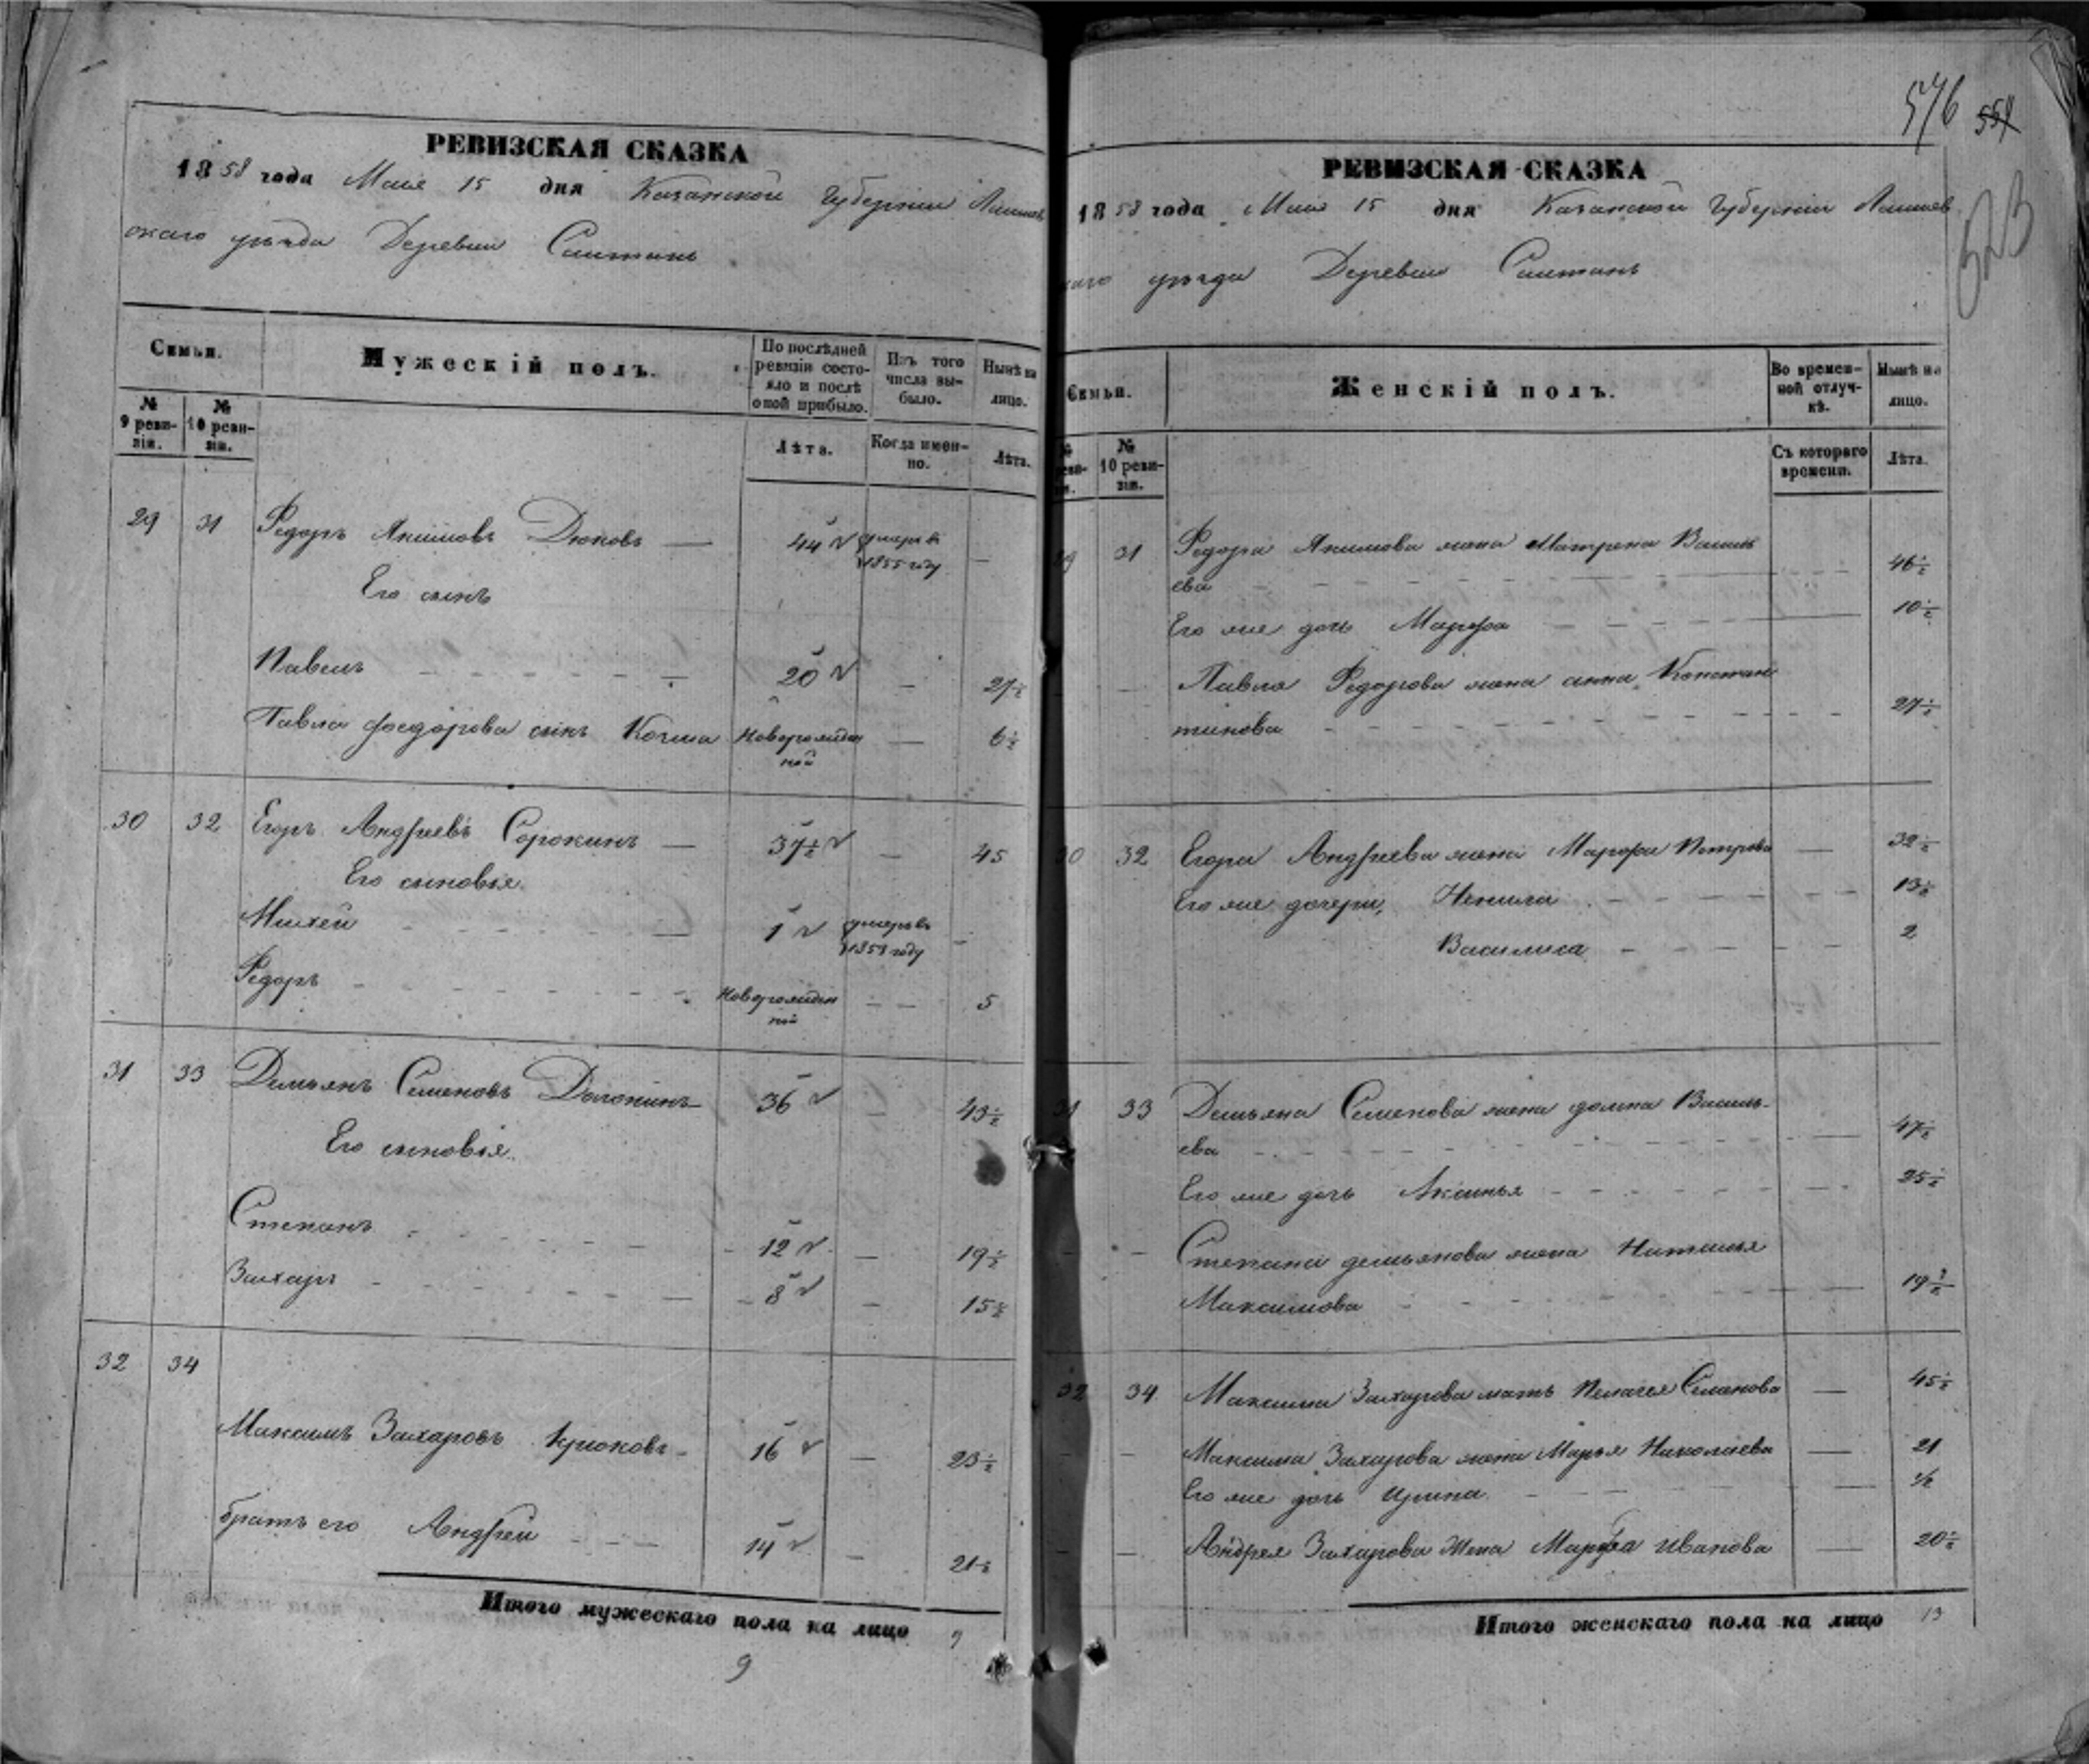 РЕВИЗСКАЯ СКАЗКА
1858 года Мая 15 дня Казанской Губернии Лаишев
скаго уѣзда Деревни Саитинъ
Семьи.
Мужескій полъ.
По послѣдней ревизіи состояло и послѣ оной прибыло.
Изъ того числа выбыло.
Нынѣ на лицо.
№ 9 ревизіи.
№ 10 ревизіи.
Лѣта.
Когда именно.
Лѣта.
29 31 Федоръ Акимовъ Дюковъ — 44 умеръ в 1855 году —
Его сынъ
Павелъ 20 — 27½
Павла Федорова сынъ Козма Новорожденной — 6½
30 32 Егоръ Андреевъ Сорокинъ — 37½ — 45
Его сыновья.
Михей 1 умеръ въ 1851 году —
Федоръ Новорожденной — — 5
31 33 Демьянъ Семеновъ 36 — 43½
Его сыновья.
Степанъ 12 — 19½
Захаръ 8 — 15½
32 34
Максимъ Захаровъ Крюковъ 16 — 23½
братъ его Андрей 14 — 21½
Итого мужескаго пола на лицо 9
9
576 558
523
РЕВИЗСКАЯ СКАЗКА
1858 года Мая 15 дня Казанской Губерніи Лаишев
скаго уѣзда Деревни Саитинъ
Семьи.
Женскій полъ.
Во временной отлучкѣ.
Нынѣ на лицо.
№ 10 ревизіи.
Съ котораго времени.
Лѣта.
29 31 Федора Акимова жена Матрена Василь
ева 46½
Его же дочь Марфа 10½
Павла Федорова жена анна Констан
тинова 27½
30 32 Егора Андреева жена Марфа Петрова — 32½
Его же дочери, Ненила 13½
Василиса 2
31 33 Демьяна Семенова жена домна Василь-
ева 47½
Его же дочь Аксинья 25½
Степана демьянова жена Наталья
Максимова 19½
32 34 Максима Захарова мать Пелагея Семенова — 45½
Максима Захарова жена Марья Николаева — 21
Его же дочь Ирина — ½
Андрея Захарова Жена Марфа Иванова — 20½
Итого женскаго пола на лицо 13